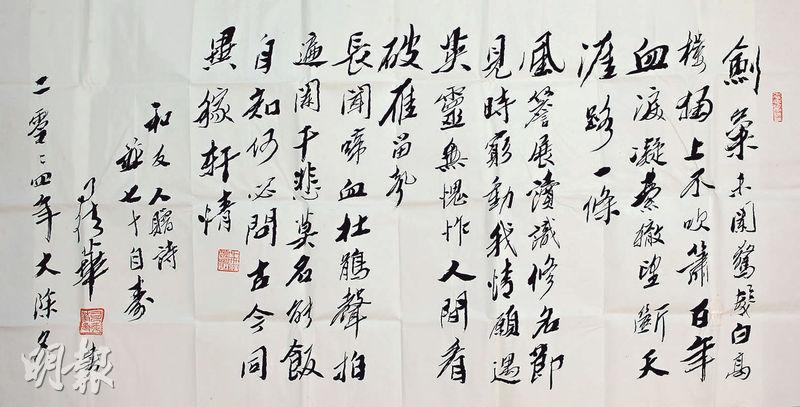 劍氣未聞驚鬢白高
樓猶上不吹簫百年
血淚凝望斷天
涯路一條
風簷展讀識修名節
見時窮動我情願遇
英靈無愧怍人間看
破雁留聲
長聞啼血杜鵑聲拍
遍闌干悲莫名能飯
自知何必問古今同
稼軒情
和友人賜詩
並七十自壽
司徒華
二零零四年大除夕
明報